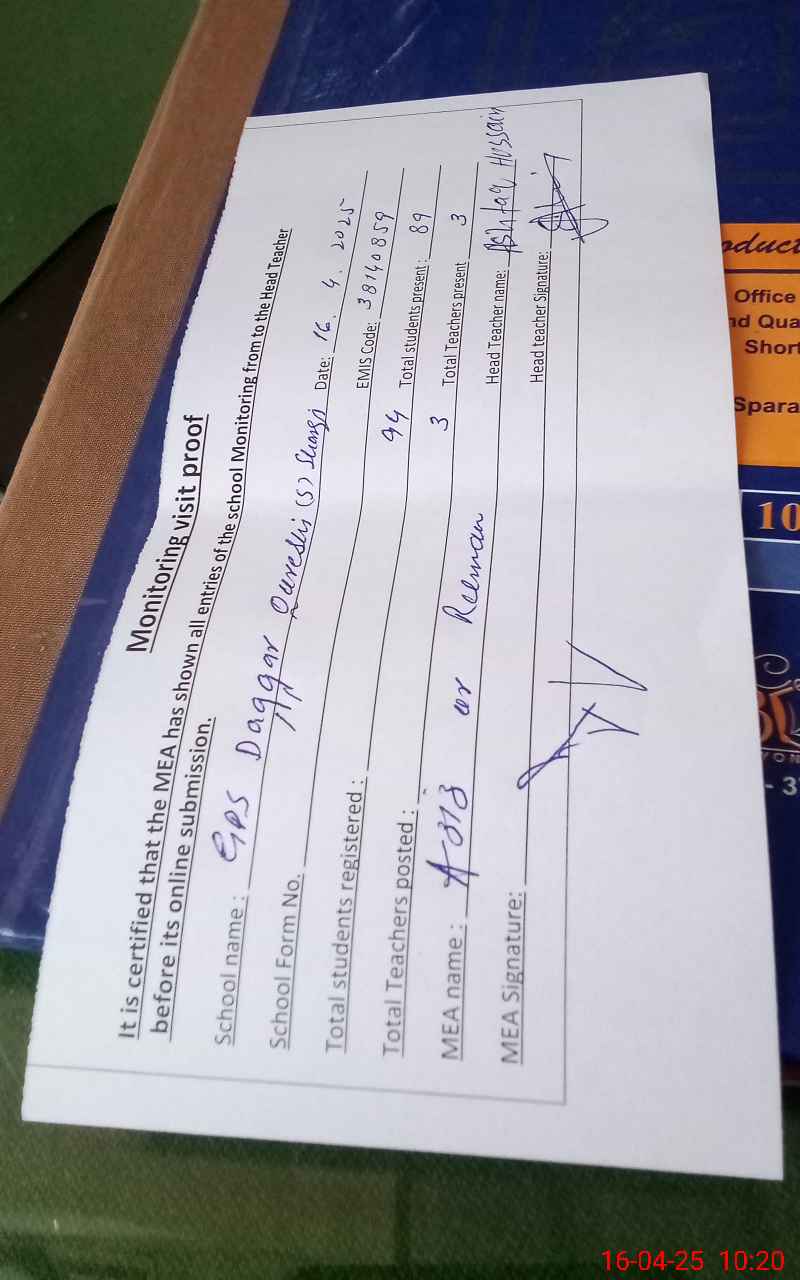 Monitoring visit proof
It is certified that the MEA has shown all entries of the school Monitoring from to the Head Teacher
before its online submission.
School name : GPS Daggar Qureshi (S) Shargi Date: 16. 4. 2025
School Form No. EMIS Code: 38140859
Total students registered : 94 Total students present : 89
Total Teachers posted : 3 Total Teachers present 3
MEA name : Aziz ur Rehman Head Teacher name: Ashfaq Hussain
MEA Signature: Head teacher Signature:
oduct
Office
nd Qua
Short
Spara
10
- 3
16-04-25 10:20